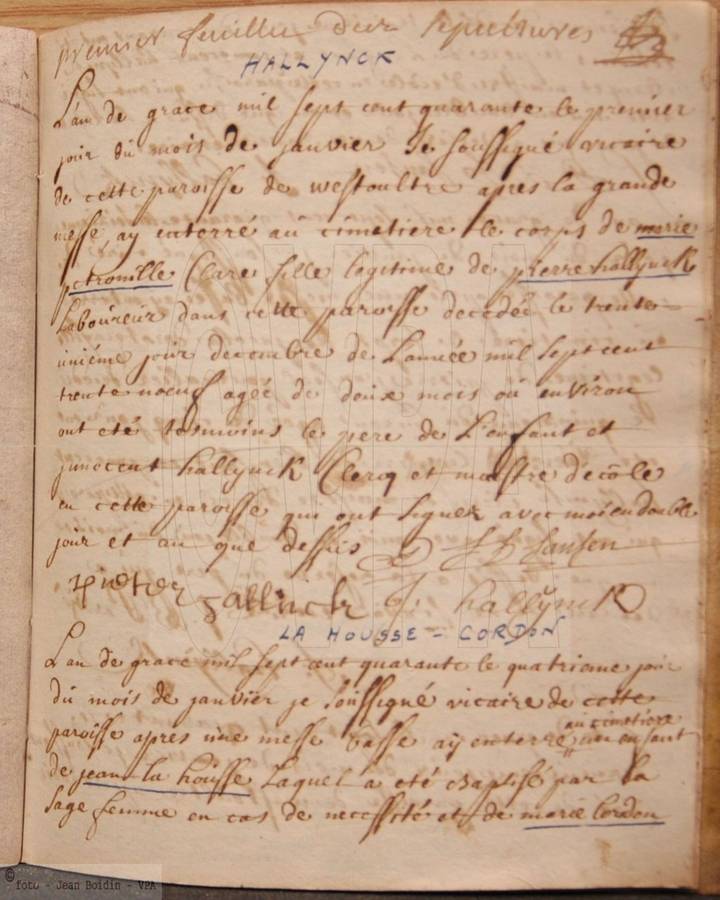 premier feuillie des sepultures
HALLYNCK
L'an de grace mil sept cent quarante le premier
jour du mois de janvier Je soussigné vicaire
de cette paroisse de westoultre apres la grande
messe ay enterré au cimetiere le corps de marie
petronille Clare fille legitime de pierre hallynck
Laboureur dans cette paroisse decedée le trente
uniéme jour decembre de L'année mil sept cent
trente noeuf agée de deux mois ou environ
ont eté tesmoins le pere de L'enfant et
jnnocent hallynck Clercq et maistre decôle
en cette paroisse qui ont signez avec moi en double
jour et an que dessus Jansen
pieter hallinck J. hallynck
LA HOUSSE = CORDON
L'an de grace mil sept cent quarante le quatrieme jour
du mois de janvier je soussigné vicaire de cette
au cimetiere
paroisse apres une messe basse ay enterre un enfant
de jean la housse Laquel a eté baptisé par la
sage femme en cas de necessité et de marie Cordon
© foto - Jean Boidin - VPA